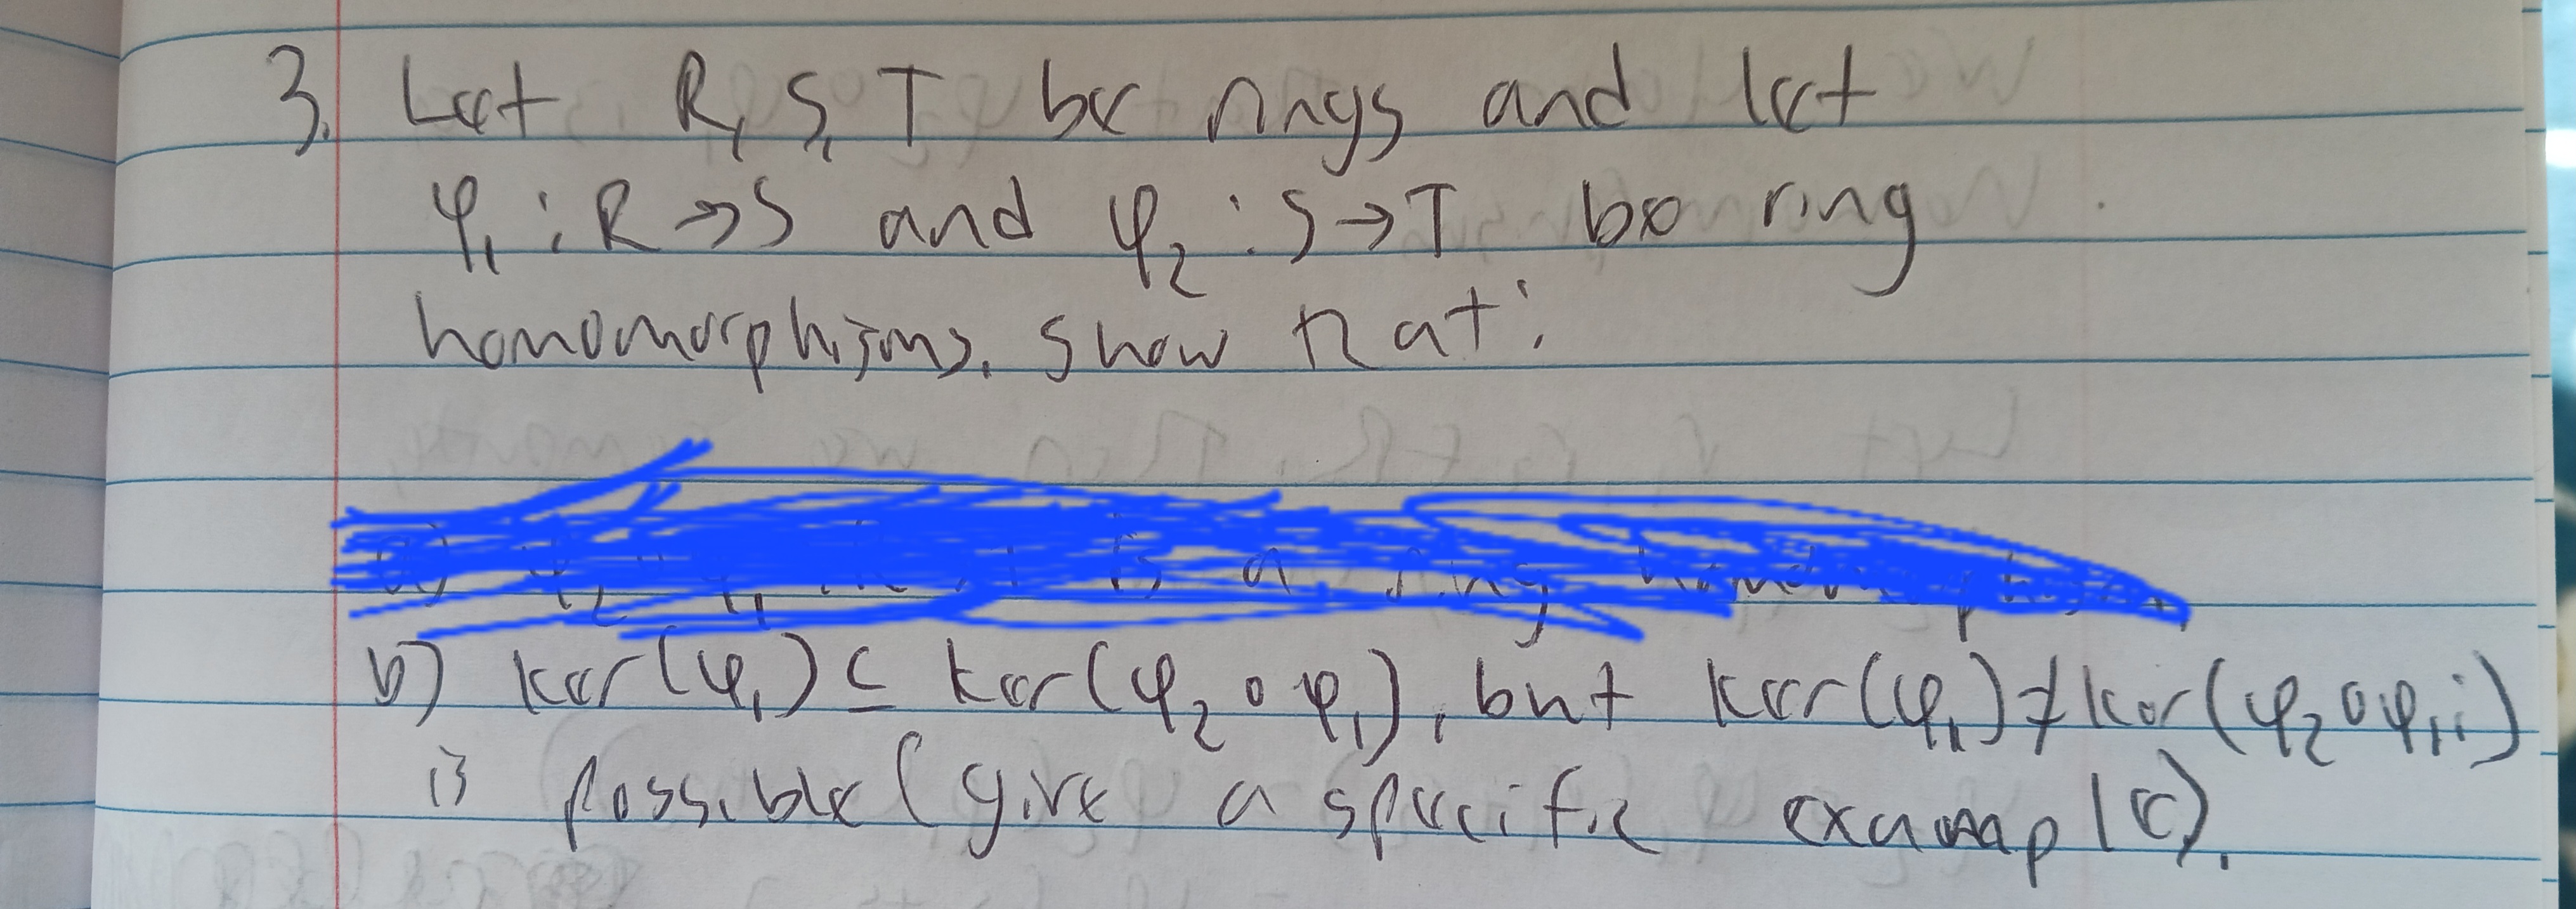 3. Let R, S, T be rings and let
φ₁ : R → S and φ₂ : S → T be ring
homomorphisms. show that :
is a ring
b) ker(φ₁) ⊆ ker(φ₂ ∘ φ₁), but ker(φ₁) ≠ ker(φ₂ ∘ φ₁)
is possible (give a specific example).